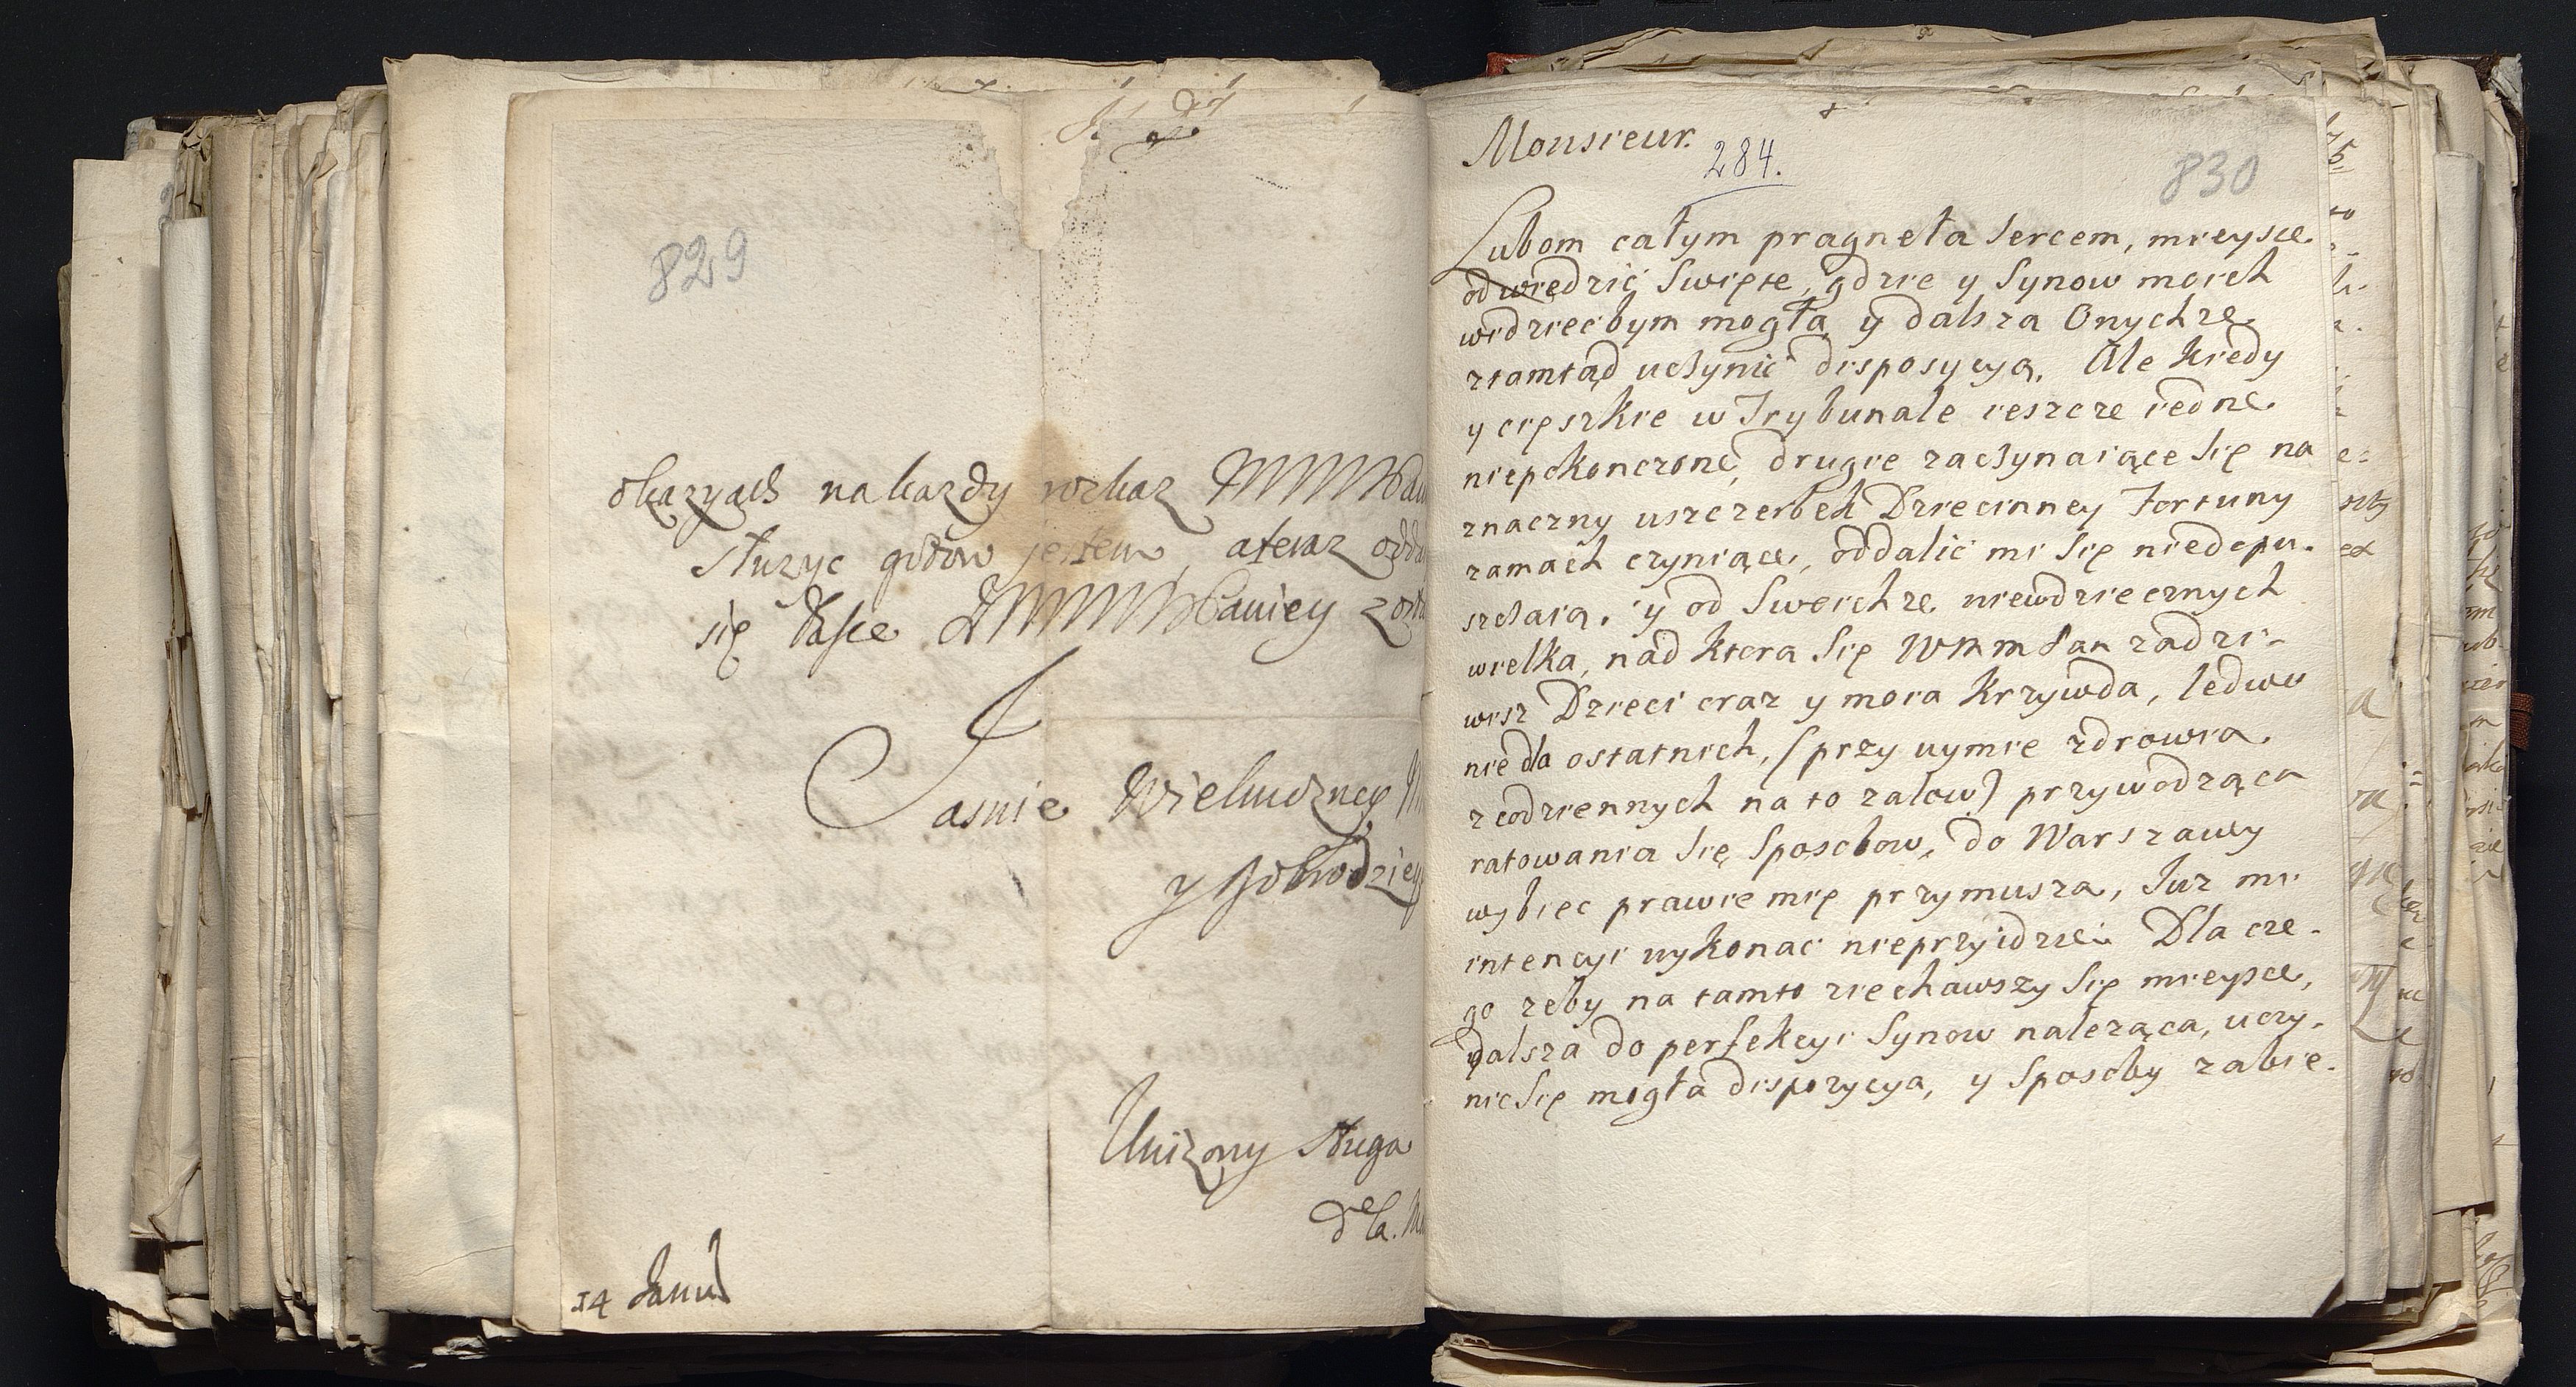 829
okazyach na kazdy rozkaz
służyc gotow jestem, a teraz
się łasce
Jasnie Wielmozney
y Dobrodziey
Unizony sługa
de la.
14 Janu
Monsieur.
284.
830
Lubom całym pragneła sercem, mieysce
odwiedzić Swięte, gdzie y Synow moich
widziec bym mogła y dalsza Onychze
ztamtąd uczynić disposycyą. Ale kiedy
y cięszkie w Trybunale ieszcze iedne
niepokonczone, drugie zaczynaiące się na
znaczny uszczerbek Dziecinney Fortuny
zamach czyniące, oddalic mi się niedopu-
szczaią. y od Swoichze niewdziecznych
wielka, nad ktora się WMM Pan zadzi-
wisz Dzieci oraz y moia krzywda, ledwo
nie do ostatnich, (przy uymie zdrowia
z codziennych na to zalow) przywodząca
ratowania się sposobow, do Warszawy
wybiec prawie mię przymusza, Juz mi
intencyi wykonac nieprzyidzie. Dla cze-
go zeby na tamto ziechawszy się mieysce,
dalsza do perfekcyi Synow naleząca, uczy-
nic się mogła dispozycya, y sposoby zabie-